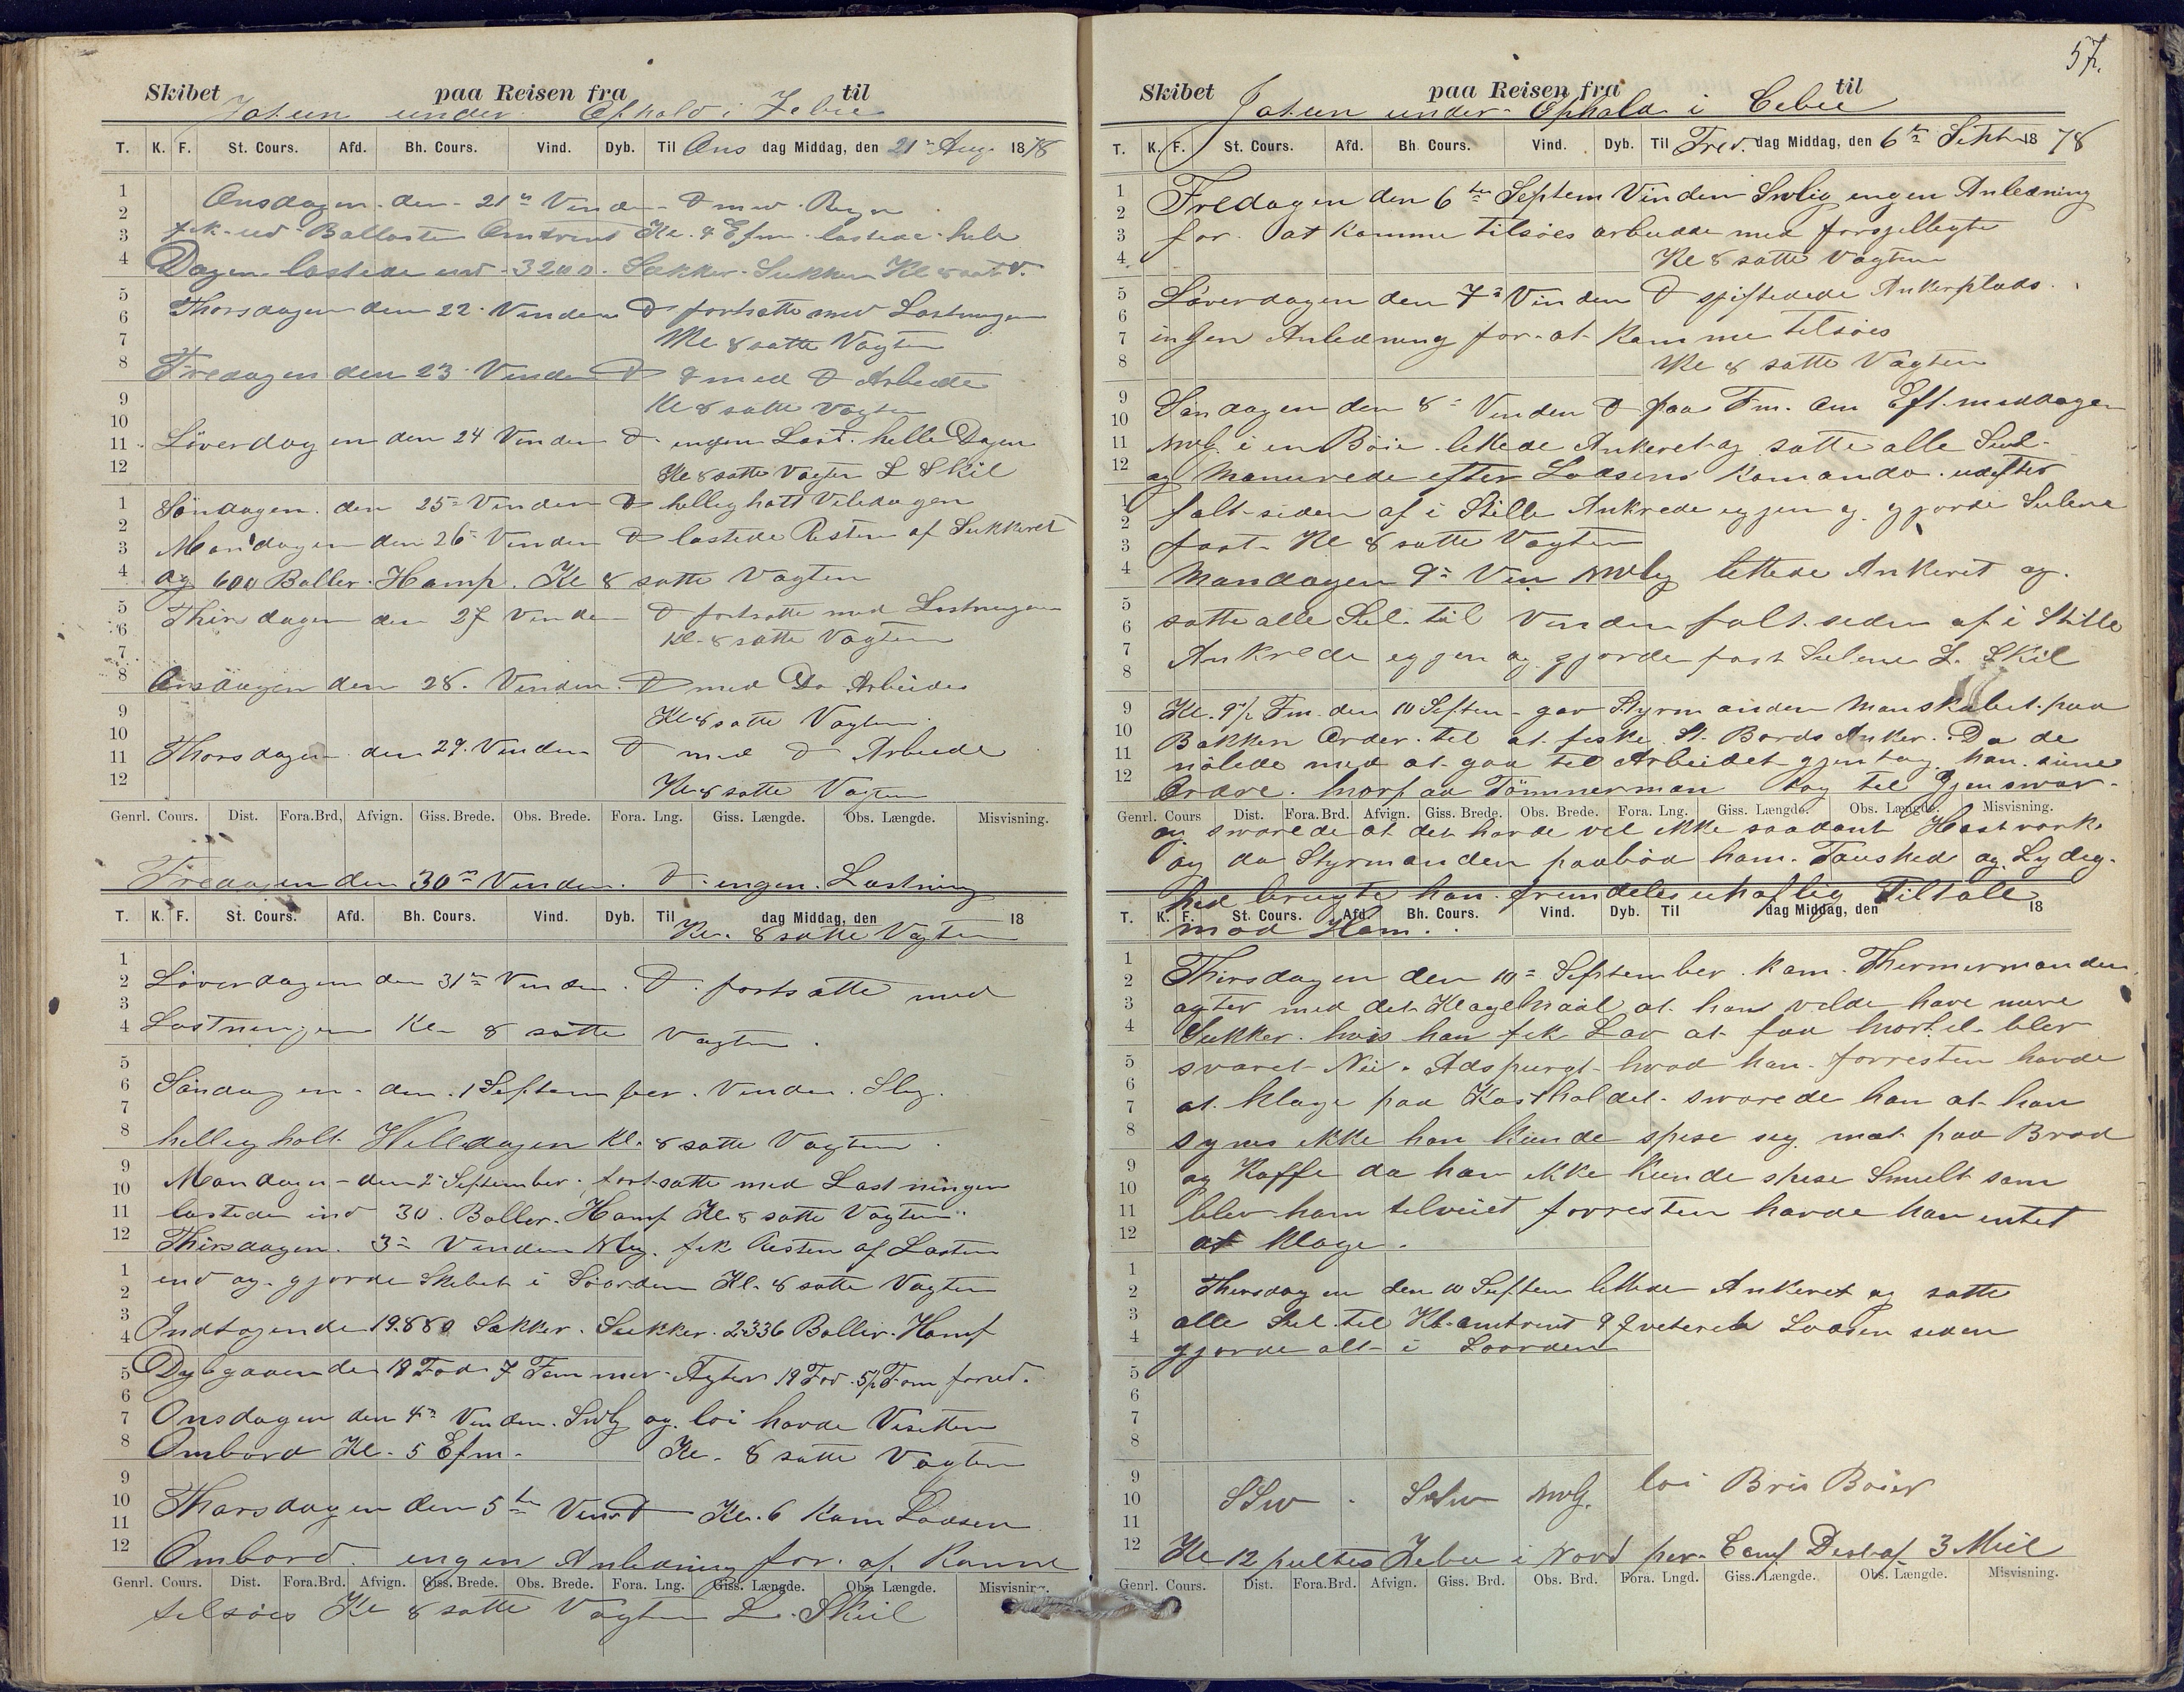 Skibet paa Reisen fra til
Jotun under Ophold i Zebu
T. K. F. St. Cours. Afd. Bh. Cours. Vind. Dyb. Til Ons dag Middag, den 21de Aug. 1878
1 2 3 4 5 6 7 8 9 10 11 12
Onsdagen den 21de Vinden Do med Regn
fik ud Ballasten Omtrent Kl. 4 Efm. lastede hele
Dagen lastede ind 3200 Sækker Sukker Kl 8 satte V.
Thorsdagen den 22 Vinden Do fortsatte med Lastningen
Kl 8 satte Vagten
Fredagen den 23 Vinden Do med Do Arbeide
Kl 8 satte Vagten
Löverdagen den 24 Vinden Do ingen Last helle Dagen
Kl 8 satte Vagten L Skil
Söndagen den 25de Vinden Do hellighatt Viledagen
Mandagen den 26de Vinden Do lastede Resten af Sukkeret
og 600 Baller Hamp. Kl 8 satte Vagten
Thirsdagen den 27 Vinden Do fortsatte med Lastningen
Kl. 8 satte Vagten
Onsdagen den 28. Vinden Do med Do Arbeide
Kl 8 satte Vagten
Thorsdagen den 29. Vinden Do med Do Arbeide
Kl 8 satte Vagten
Genrl. Cours. Dist. Fora.Brd, Afvign. Giss. Brede. Obs. Brede. Fora. Lng. Giss. Længde. Obs. Længde. Misvisning.
Fredagen den 30te Vinden Do ingen Lastning
T. K. F. St. Cours. Afd. Bh. Cours. Vind. Dyb. Til dag Middag, den 18
Kl. 8 satte Vagten
1 2 3 4 5 6 7 8 9 10 11 12
Löverdagen den 31te Vinden Do fortsatte med
Lastningen Kl 8 satte Vagten.
Söndagen den 1 September. Vinden Slg.
hellighalt Hviledagen Kl. 8 satte Vagten
Mandagen den 2de September fortsatte med Lastningen
lastede ind 30 Baller Hamp Kl 8 satte Vagten
Thirsdagen 3de Vinden Nlig. fik Resten af Lasten
ind og gjorde Skibet i Söorden Kl. 8 satte Vagten
Indtagende 19.880 Sækker Sukker 2336 Baller Hamp
Dybgaaende 19 Fod 7 Tommer Agter 19 Fod 5½ Tom forud.
Onsdagen den 4de Vinden SWlg og loi havde Visitten
Ombord Kl. 5 Efm. Kl. 8 satte Vagten
Thorsdagen den 5te Vind Do Kl. 6 Kom Lodsen
Ombord. ingen Anledning for at Komme
Genrl. Cours. Dist. Fora.Brd. Afvign. Giss. Brede. Obs. Brede. Fora. Lng. Giss. Længde. Obs. Længde. Misvisning.
tilsöes Kl 8 satte Vagten L. Skiil
57.
Skibet paa Reisen fra til
Jotun under Ophold i Cebu
T. K. F. St. Cours. Afd. Bh. Cours. Vind. Dyb. Til Fred. dag Middag, den 6te Sept 1878
1 2 3 4 5 6 7 8 9 10 11 12
Fredagen den 6te Septem Vinden SWlig ingen Anledning
for at Komme tilsöes arbeidde med forsjelligt
Kl 8 satte Vagten
Löverdagen den 7de Vinden Do sjiftedede Ankerplads.
ingen Anledning for at Komme tilsöes
Kl 8 satte Vagten
Söndagen den 8de Vinden Do paa Fm. Om Eft.meddagen
NWlg. i en Böie lettede Ankeret og satte alle Seil
og Manurede efter Lodsens Komando udefter
falt siden af i Stille Ankrede egjen og gjorde Seilene
fast Kl 8 satte Vagten
Mandagen 9de Vin NWlg lettede Ankeret og
satte alle Seil til Vinden falt seden af i Stille
Ankrede egjen og gjorde fast Seilene L. Skil
Kl. 9½ Fm. den 10 Septem gav Styrmanden Manskabet paa
Bakken Order til at fiske St. Bords Anker. Da de
nölede med at gaa til Arbeidet gjentog han sine
Ordre. hvorpaa Tömmerman tog til Gjenswar
Genrl. Cours Dist. Fora.Brd. Afvign. Giss. Brede. Obs. Brede. Fora. Lng. Giss. Længde. Obs. Længde. Misvisning.
og swarede at det havde vel ikke saadant Hastvark
og da Styrmanden paabød ham Taushed og Lydig-
hed brugte han fremdeles uhøflig Tiltale
T. K. F. St. Cours. Afd. Bh. Cours. Vind. Dyb. Til dag Middag, den 18
mod Ham.
1 2 3 4 5 6 7 8 9 10 11 12
Thirsdagen den 10de September kom Thermermanden
agter med det Klagelmaal at han vilde have mere
Sukker hvis han fik Lov at faa hvortil blev
svaret Nei. Adspurgt hvad han forresten havde
at klage paa Kostholdet swarede han at han
synes ikke han kunde spise seg mæt paa Bröd
og Kaffe da han ikke kunde spise Smult som
blev ham tilveiet forresten havde han intet
at klage.
Thirsdagen den 10 Septem lettede Ankeret og satte
alle Seil til Kl. omtrent 9 kveterede Lodsen seden
gjorde alt i Soorden
SSW. SSW NWlg. loi Bris Böier
Kl 12 peiltes Zebu i Nord per. Comp Dist af 3 Miil
Genrl. Cours. Dist. Fora.Brd. Afvign. Giss. Brd. Obs. Brd. Fora. Lngd. Giss. Længde. Obs. Længde. Misvisning.